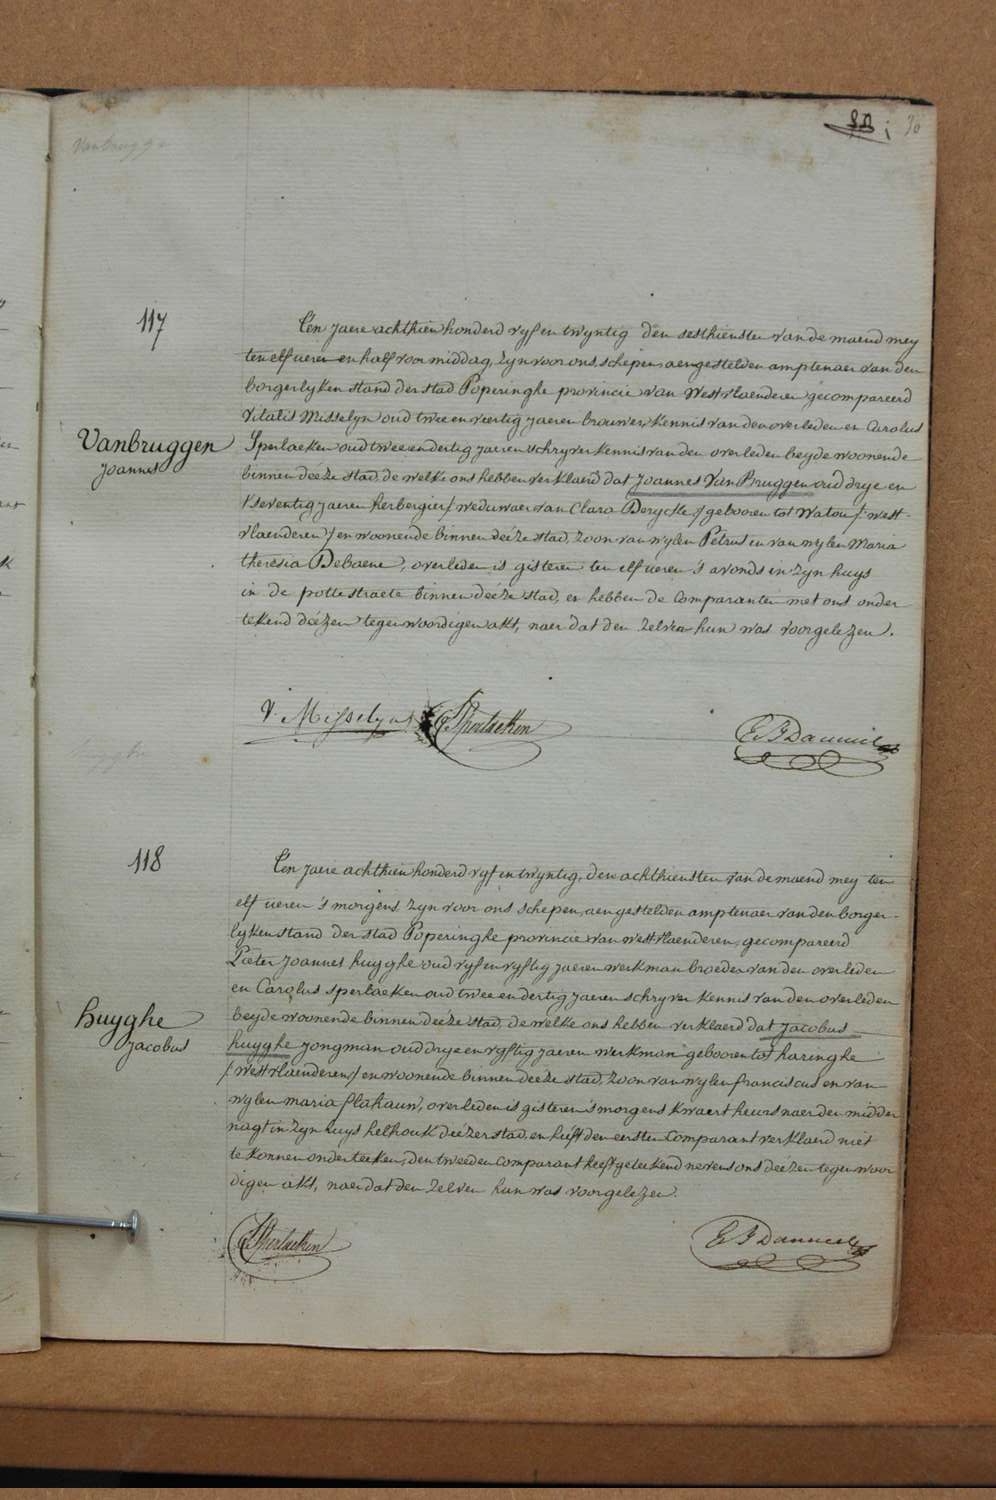 30
117
Vanbruggen
Joannes
Een jaere achthien honderd vyf en twyntig den sesthiensten van de maend mey
ten elf ueren en half voor middag, zyn voor ons schepen aengestelden amptenaer van den
borgerlyken stand der stad Poperinghe provincie van West vlaenderen gecompareerd
Vitalis Misselyn oud twee en veertig jaeren brouwer, kennis van den overleden en Carolus
Sperlaeken oud twee en dertig jaeren schryver kennis van den overleden beyde woonende
binnen deéze stad, de welke ons hebben verklaerd dat Joannes Van Bruggen oud drye en
t'seventig jaeren herbergier / weduwaer van Clara Derycke / gebooren tot Watou /: west-
vlaenderen / en woonende binnen deéze stad, zoon van wylen Petrus en van wylen Maria
theresia Debaene, overleden is gisteren ten elf ueren 's avonds in zyn huys
in de potte straete binnen deéze stad, en hebben de Comparanten met ons onder
tekend deézen tegenwoordigen akt, naer dat den zelven hun was voorgelezen.
V. Misselyn C Sperlaeken
118
Huyghe
Jacobus
Een jaere achthien honderd vyf en twyntig, den achthiensten van de maend mey ten
elf ueren 's morgens zyn voor ons schepen, aengestelden amptenaer van den borger-
lyken stand der stad Poperinghe provincie van westvlaenderen, gecompareerd
Pieter Joannes huyghe oud vyf en vyftig jaeren werkman broeder van den overleden
en Carolus sperlaeken oud twee en dertig jaeren schryver kennis van den overleden
beyde woonende binnen deéze stad, de welke ons hebben verklaerd dat Jacobus
huyghe jongman oud drye en vyftig jaeren werkman gebooren tot haringhe
/: Westvlaenderen / en woonende binnen deéze stad, zoon van wylen franciscus en van
wylen maria flahaun, overleden is gisteren 's morgens kwaert heurs naer den midder
nagt in zyn huys helhouk deézer stad, en heéft den eersten Comparant verklaerd niet
te konnen onderteeken, den tweeden comparant heéft geteekend nevens ons deézen tegenwoor
digen akt, naer dat den zelven hun was voorgelezen.
C Sperlaeken